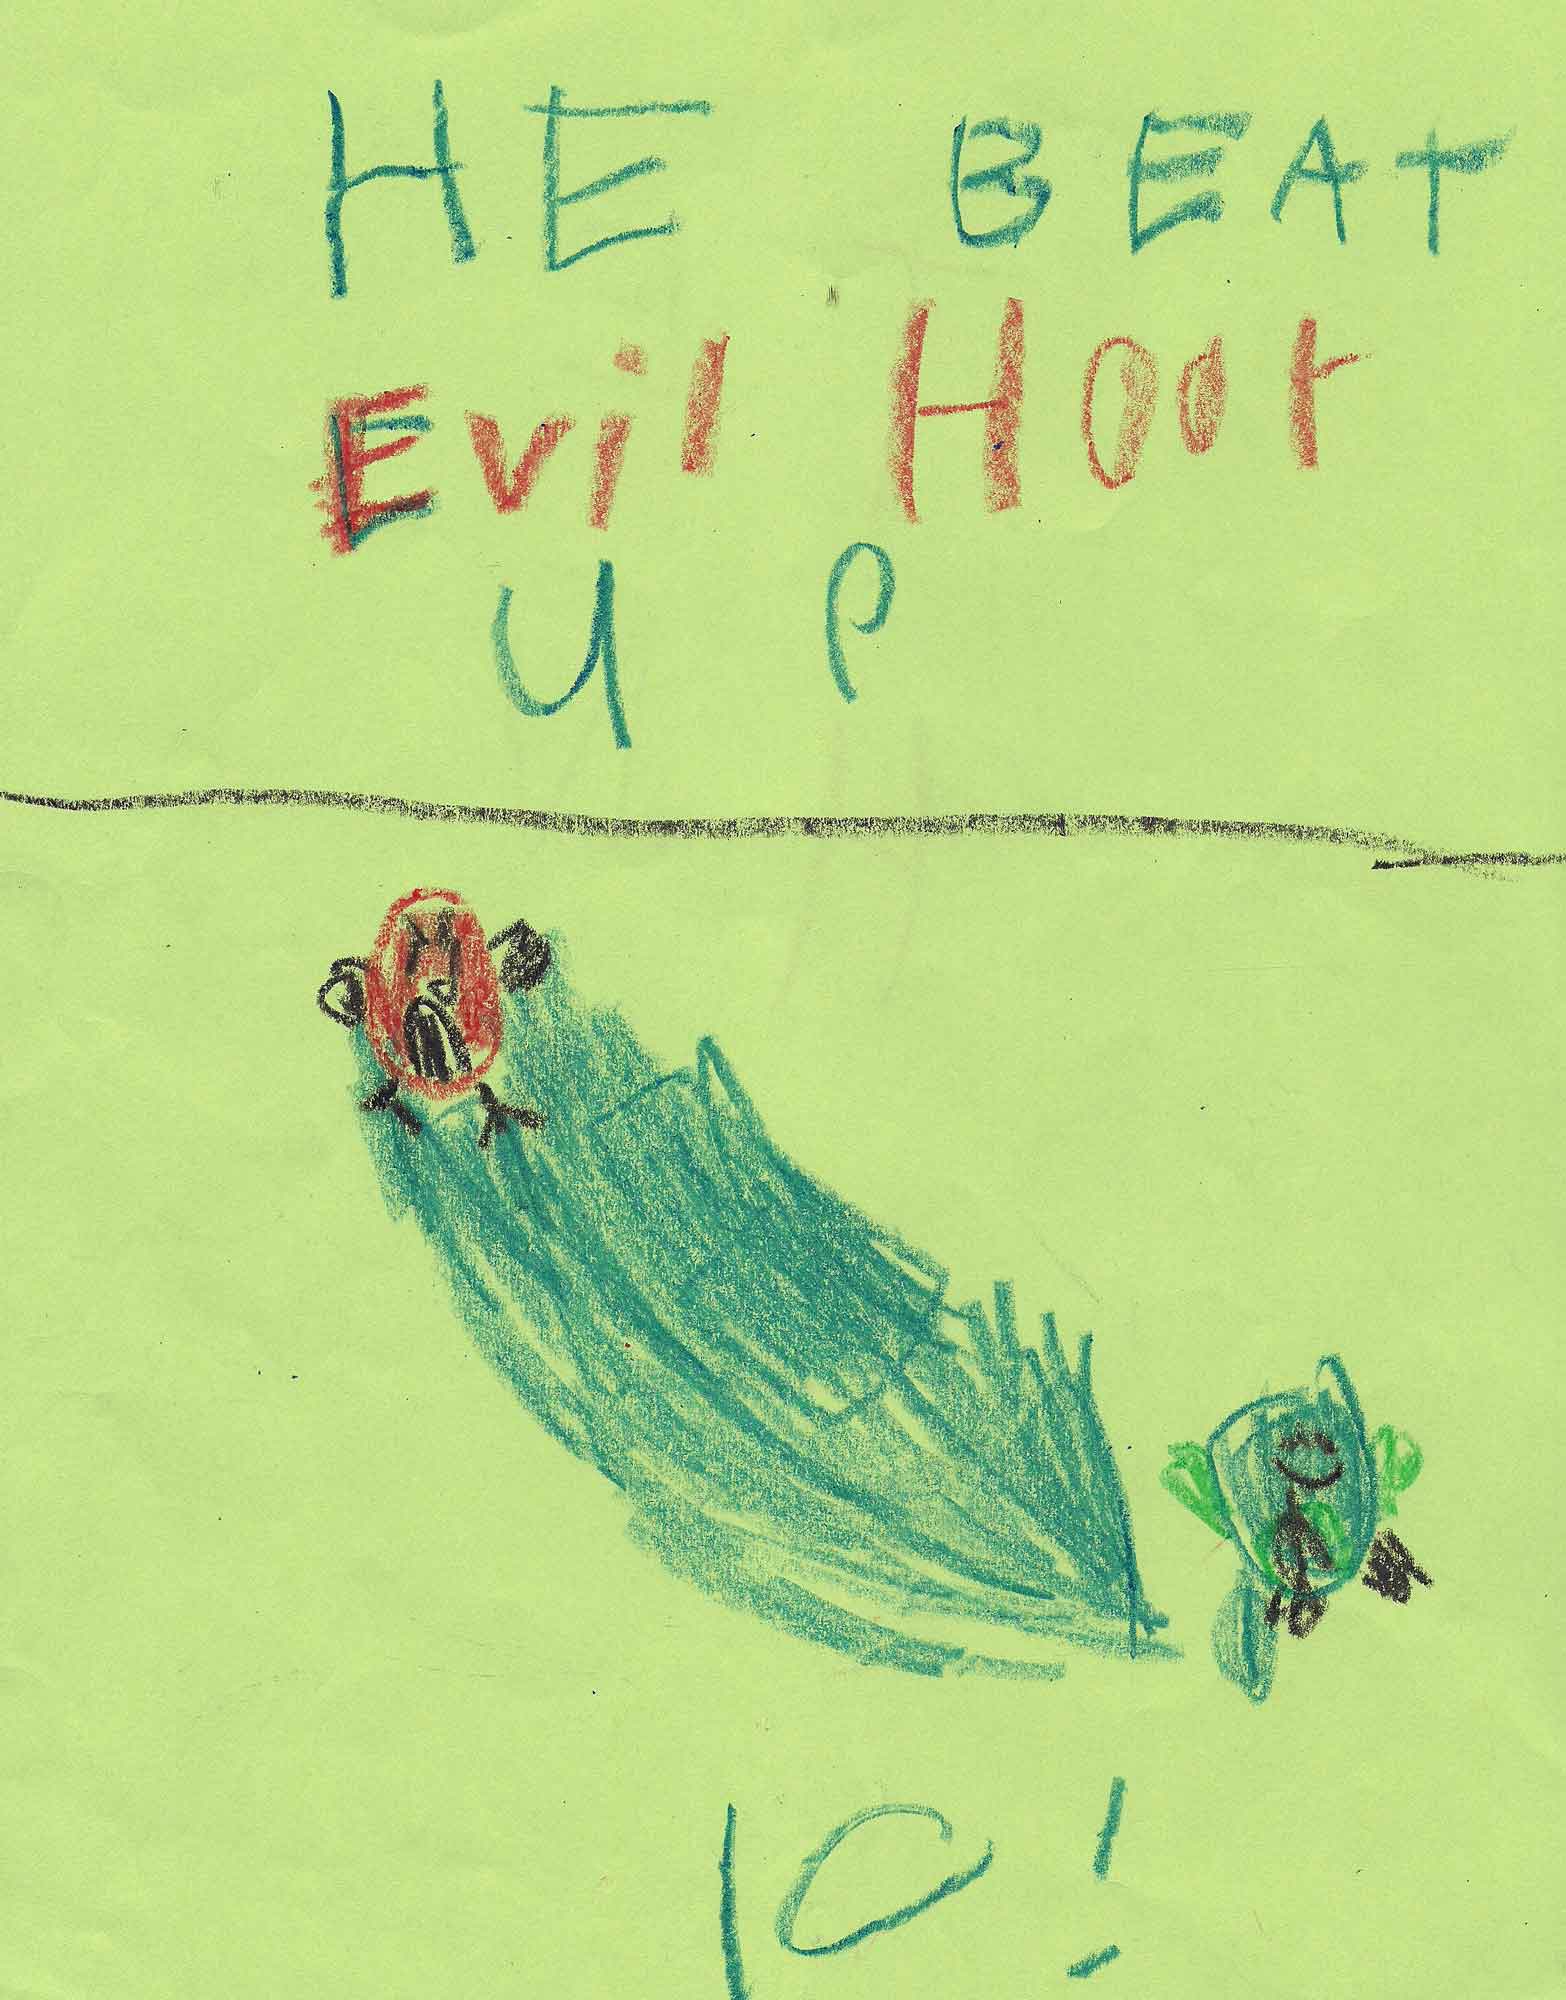 HE BEAT
Evil Hoot
UP
10!